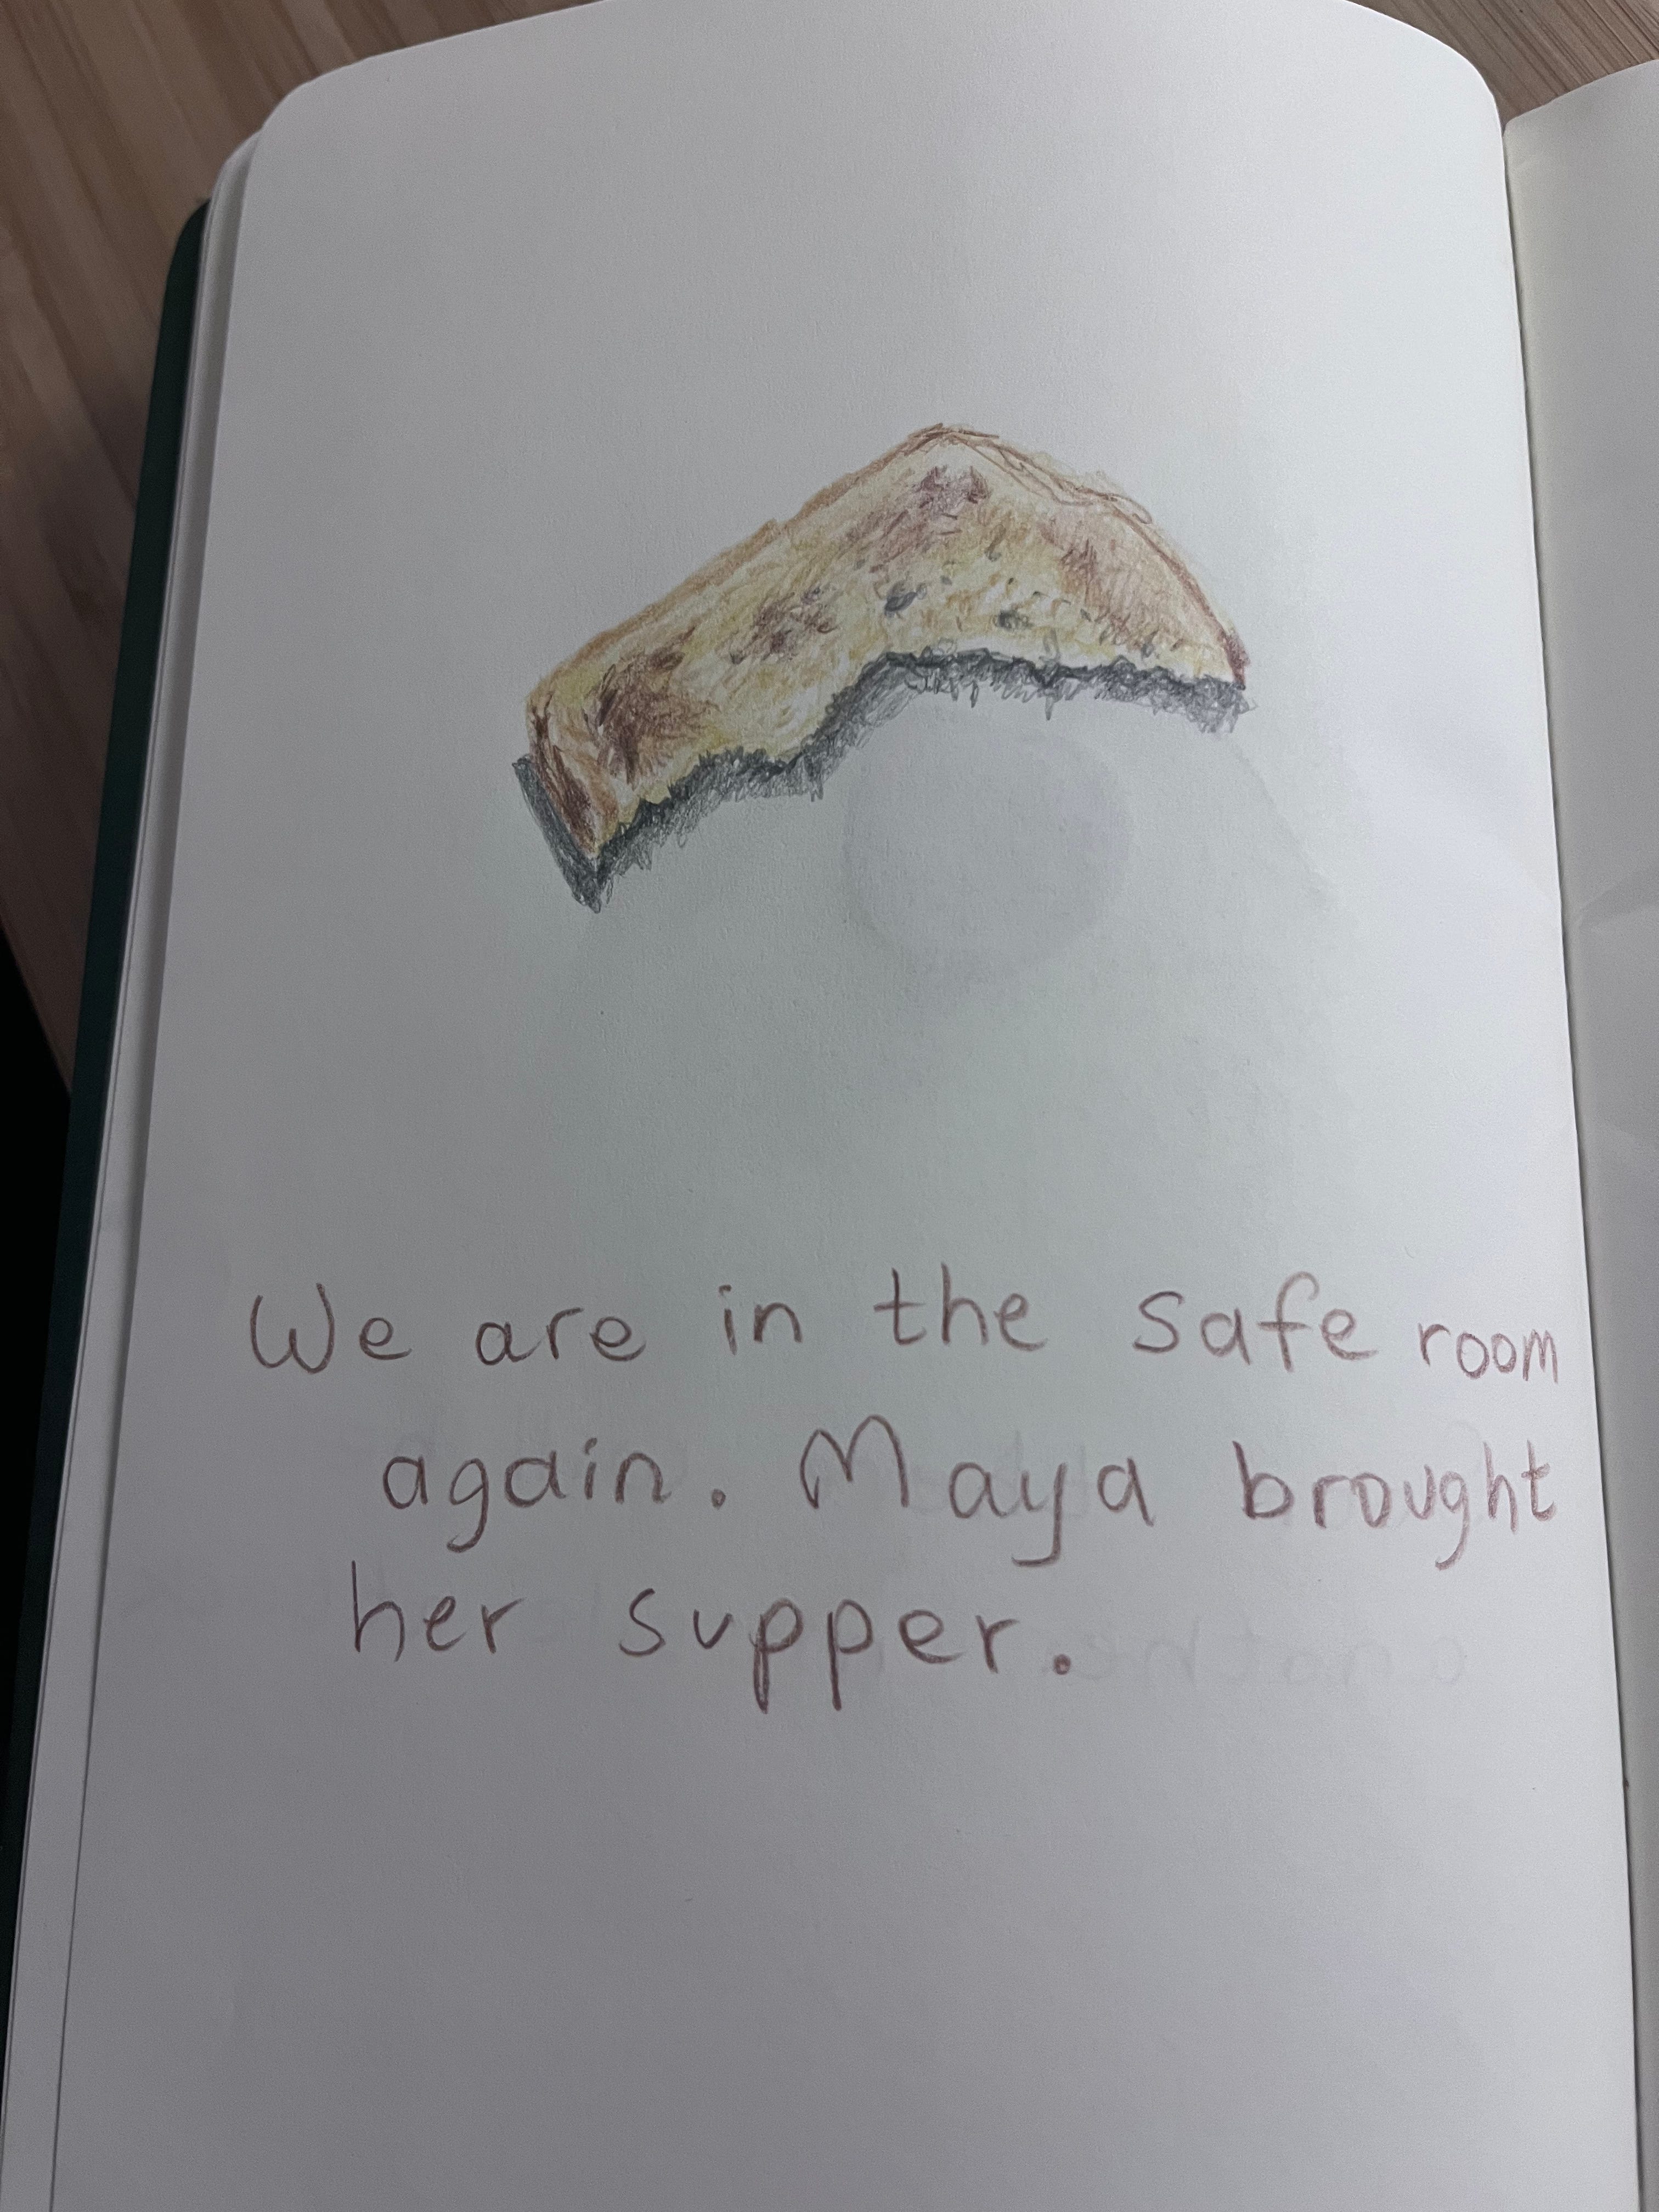 We are in the safe room
again. Maya brought
her supper.